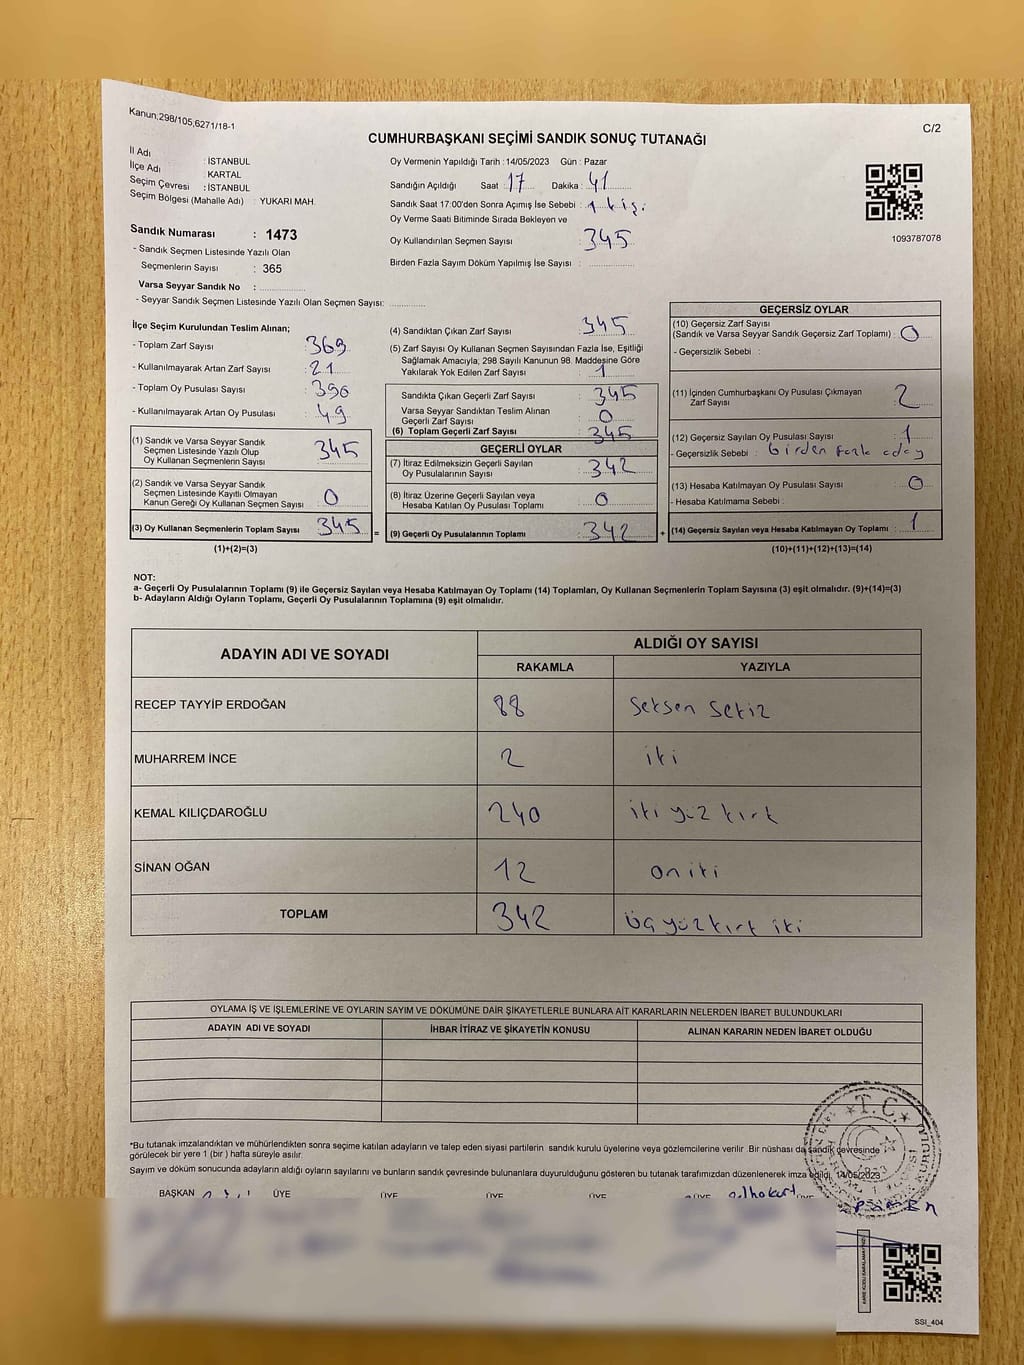 Kanun;298/105,6271/18-1
C/2
CUMHURBAŞKANI SEÇİMİ SANDIK SONUÇ TUTANAĞI
İl Adı : İSTANBUL
İlçe Adı : KARTAL
Seçim Çevresi : İSTANBUL
Seçim Bölgesi (Mahalle Adı) : YUKARI MAH.
Sandık Numarası : 1473
- Sandık Seçmen Listesinde Yazılı Olan
Seçmenlerin Sayısı : 365
Varsa Seyyar Sandık No :
- Seyyar Sandık Seçmen Listesinde Yazılı Olan Seçmen Sayısı:
Oy Vermenin Yapıldığı Tarih : 14/05/2023 Gün : Pazar
Sandığın Açıldığı Saat : 17 Dakika : 41
Sandık Saat 17:00'den Sonra Açımış İse Sebebi : 1 kişi
Oy Verme Saati Bitiminde Sırada Bekleyen ve
Oy Kullandırılan Seçmen Sayısı : 345
Birden Fazla Sayım Döküm Yapılmış İse Sayısı :
1093787078
İlçe Seçim Kurulundan Teslim Alınan;
- Toplam Zarf Sayısı : 369
- Kullanılmayarak Artan Zarf Sayısı : 21
- Toplam Oy Pusulası Sayısı : 390
- Kullanılmayarak Artan Oy Pusulası : 49
(1) Sandık ve Varsa Seyyar Sandık
Seçmen Listesinde Yazılı Olup
Oy Kullanan Seçmenlerin Sayısı : 345
(2) Sandık ve Varsa Seyyar Sandık
Seçmen Listesinde Kayıtlı Olmayan
Kanun Gereği Oy Kullanan Seçmen Sayısı : 0
(3) Oy Kullanan Seçmenlerin Toplam Sayısı : 345
(1)+(2)=(3)
(4) Sandıktan Çıkan Zarf Sayısı : 345
(5) Zarf Sayısı Oy Kullanan Seçmen Sayısından Fazla İse, Eşitliği
Sağlamak Amacıyla, 298 Sayılı Kanunun 98. Maddesine Göre
Yakılarak Yok Edilen Zarf Sayısı : 1
Sandıkta Çıkan Geçerli Zarf Sayısı : 345
Varsa Seyyar Sandıktan Teslim Alınan
Geçerli Zarf Sayısı : 0
(6) Toplam Geçerli Zarf Sayısı : 345
GEÇERLİ OYLAR
(7) İtiraz Edilmeksizin Geçerli Sayılan
Oy Pusulalarının Sayısı : 342
(8) İtiraz Üzerine Geçerli Sayılan veya
Hesaba Katılan Oy Pusulası Toplamı : 0
= (9) Geçerli Oy Pusulalarının Toplamı : 342
GEÇERSİZ OYLAR
(10) Geçersiz Zarf Sayısı
(Sandık ve Varsa Seyyar Sandık Geçersiz Zarf Toplamı) : 0
- Geçersizlik Sebebi :
(11) İçinden Cumhurbaşkanı Oy Pusulası Çıkmayan
Zarf Sayısı : 2
(12) Geçersiz Sayılan Oy Pusulası Sayısı : 1
- Geçersizlik Sebebi : birden fazla aday
(13) Hesaba Katılmayan Oy Pusulası Sayısı : 0
- Hesaba Katılmama Sebebi :
+ (14) Geçersiz Sayılan veya Hesaba Katılmayan Oy Toplamı : 1
(10)+(11)+(12)+(13)=(14)
NOT:
a- Geçerli Oy Pusulalarının Toplamı (9) ile Geçersiz Sayılan veya Hesaba Katılmayan Oy Toplamı (14) Toplamları, Oy Kullanan Seçmenlerin Toplam Sayısına (3) eşit olmalıdır. (9)+(14)=(3)
b- Adayların Aldığı Oyların Toplamı, Geçerli Oy Pusulalarının Toplamına (9) eşit olmalıdır.
ADAYIN ADI VE SOYADI
ALDIĞI OY SAYISI
RAKAMLA YAZIYLA
RECEP TAYYİP ERDOĞAN 88 Seksen Sekiz
MUHARREM İNCE 2 iki
KEMAL KILIÇDAROĞLU 240 iki yüz kırk
SİNAN OĞAN 12 on iki
TOPLAM 342 üç yüz kırk iki
OYLAMA İŞ VE İŞLEMLERİNE VE OYLARIN SAYIM VE DÖKÜMÜNE DAİR ŞİKAYETLERLE BUNLARA AİT KARARLARIN NELERDEN İBARET BULUNDUKLARI
ADAYIN ADI VE SOYADI İHBAR İTİRAZ VE ŞİKAYETİN KONUSU ALINAN KARARIN NEDEN İBARET OLDUĞU
*Bu tutanak imzalandıktan ve mühürlendikten sonra seçime katılan adayların ve talep eden siyasi partilerin sandık kurulu üyelerine veya gözlemcilerine verilir .Bir nüshası da sandık çevresinde
görülecek bir yere 1 (bir ) hafta süreyle asılır.
Sayım ve döküm sonucunda adayların aldığı oyların sayılarını ve bunların sandık çevresinde bulunanlara duyurulduğunu gösteren bu tutanak tarafımızdan düzenlenerek imza edildi. 14/05/2023
T.C.
BAŞKAN ÜYE ÜYE ÜYE ÜYE ÜYE ÜYE
SSI_404